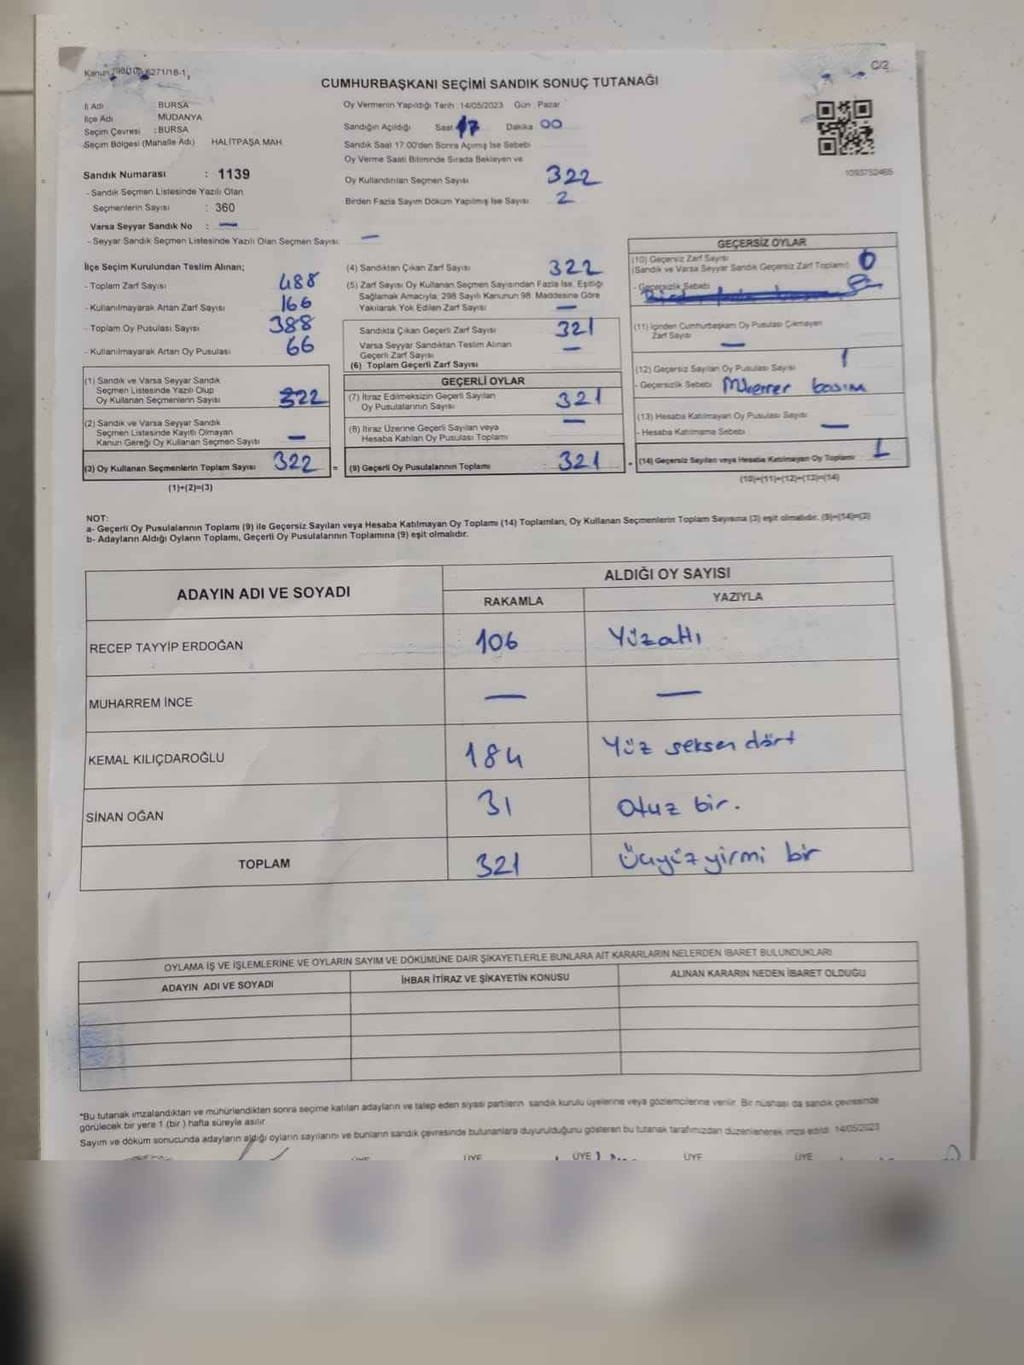 C/2
CUMHURBAŞKANI SEÇİMİ SANDIK SONUÇ TUTANAĞI
İl Adı BURSA
İlçe Adı MUDANYA
Seçim Çevresi : BURSA
Seçim Bölgesi (Mahalle Adı) HALİTPAŞA MAH.
Sandık Numarası : 1139
- Sandık Seçmen Listesinde Yazılı Olan
Seçmenlerin Sayısı : 360
Varsa Seyyar Sandık No : —
- Seyyar Sandık Seçmen Listesinde Yazılı Olan Seçmen Sayısı: —
Oy Vermenin Yapıldığı Tarih :14/05/2023 Gün : Pazar
Sandığın Açıldığı Saat 17 Dakika 00
Sandık Saat 17:00'den Sonra Açılmış İse Sebebi
Oy Verme Saati Bitiminde Sırada Bekleyen ve
Oy Kullandırılan Seçmen Sayısı 322
Birden Fazla Sayım Döküm Yapılmış İse Sayısı 2
İlçe Seçim Kurulundan Teslim Alınan;
- Toplam Zarf Sayısı 488
- Kullanılmayarak Artan Zarf Sayısı 166
- Toplam Oy Pusulası Sayısı 388
- Kullanılmayarak Artan Oy Pusulası 66
(1) Sandık ve Varsa Seyyar Sandık
Seçmen Listesinde Yazılı Olup
Oy Kullanan Seçmenlerin Sayısı 322
(2) Sandık ve Varsa Seyyar Sandık
Seçmen Listesinde Kayıtlı Olmayan
Kanun Gereği Oy Kullanan Seçmen Sayısı —
(3) Oy Kullanan Seçmenlerin Toplam Sayısı 322
(1)+(2)=(3)
(4) Sandıktan Çıkan Zarf Sayısı 322
(5) Zarf Sayısı Oy Kullanan Seçmen Sayısından Fazla İse, Eşitliği
Sağlamak Amacıyla, 298 Sayılı Kanunun 98. Maddesine Göre
Yakılarak Yok Edilen Zarf Sayısı —
Sandıkta Çıkan Geçerli Zarf Sayısı 321
Varsa Seyyar Sandıktan Teslim Alınan
Geçerli Zarf Sayısı —
(6) Toplam Geçerli Zarf Sayısı
GEÇERLİ OYLAR
(7) İtiraz Edilmeksizin Geçerli Sayılan
Oy Pusulalarının Sayısı 321
(8) İtiraz Üzerine Geçerli Sayılan veya
Hesaba Katılan Oy Pusulası Toplamı —
= (9) Geçerli Oy Pusulalarının Toplamı 321
GEÇERSİZ OYLAR
(10) Geçersiz Zarf Sayısı
(Sandık ve Varsa Seyyar Sandık Geçersiz Zarf Toplamı) 0
- Geçersizlik Sebebi
(11) İçinden Cumhurbaşkanı Oy Pusulası Çıkmayan
Zarf Sayısı —
(12) Geçersiz Sayılan Oy Pusulası Sayısı 1
- Geçersizlik Sebebi Mükerrer basım
(13) Hesaba Katılmayan Oy Pusulası Sayısı
- Hesaba Katılmama Sebebi —
+ (14) Geçersiz Sayılan veya Hesaba Katılmayan Oy Toplamı 1
(10)+(11)+(12)+(13)=(14)
NOT:
a- Geçerli Oy Pusulalarının Toplamı (9) ile Geçersiz Sayılan veya Hesaba Katılmayan Oy Toplamı (14) Toplamları, Oy Kullanan Seçmenlerin Toplam Sayısına (3) eşit olmalıdır. (9)+(14)=(3)
b- Adayların Aldığı Oyların Toplamı, Geçerli Oy Pusulalarının Toplamına (9) eşit olmalıdır.
ADAYIN ADI VE SOYADI ALDIĞI OY SAYISI
RAKAMLA YAZIYLA
RECEP TAYYİP ERDOĞAN 106 Yüzaltı
MUHARREM İNCE — —
KEMAL KILIÇDAROĞLU 184 Yüz seksen dört
SİNAN OĞAN 31 Otuz bir.
TOPLAM 321 Üçyüzyirmi bir
OYLAMA İŞ VE İŞLEMLERİNE VE OYLARIN SAYIM VE DÖKÜMÜNE DAİR ŞİKAYETLERLE BUNLARA AİT KARARLARIN NELERDEN İBARET BULUNDUKLARI
ADAYIN ADI VE SOYADI İHBAR İTİRAZ VE ŞİKAYETİN KONUSU ALINAN KARARIN NEDEN İBARET OLDUĞU
*Bu tutanak imzalandıktan ve mühürlendikten sonra seçime katılan adayların ve talep eden siyasi partilerin sandık kurulu üyelerine veya gözlemcilerine verilir. Bir nüshası da sandık çevresinde
görülecek bir yere 1 (bir) hafta süreyle asılır.
Sayım ve döküm sonucunda adayların aldığı oyların sayılarını ve bunların sandık çevresinde bulunanlara duyurulduğunu gösteren bu tutanak tarafımızdan düzenlenerek imza edildi. 14/05/2023
ÜYE ÜYE ÜYE ÜYE ÜYE